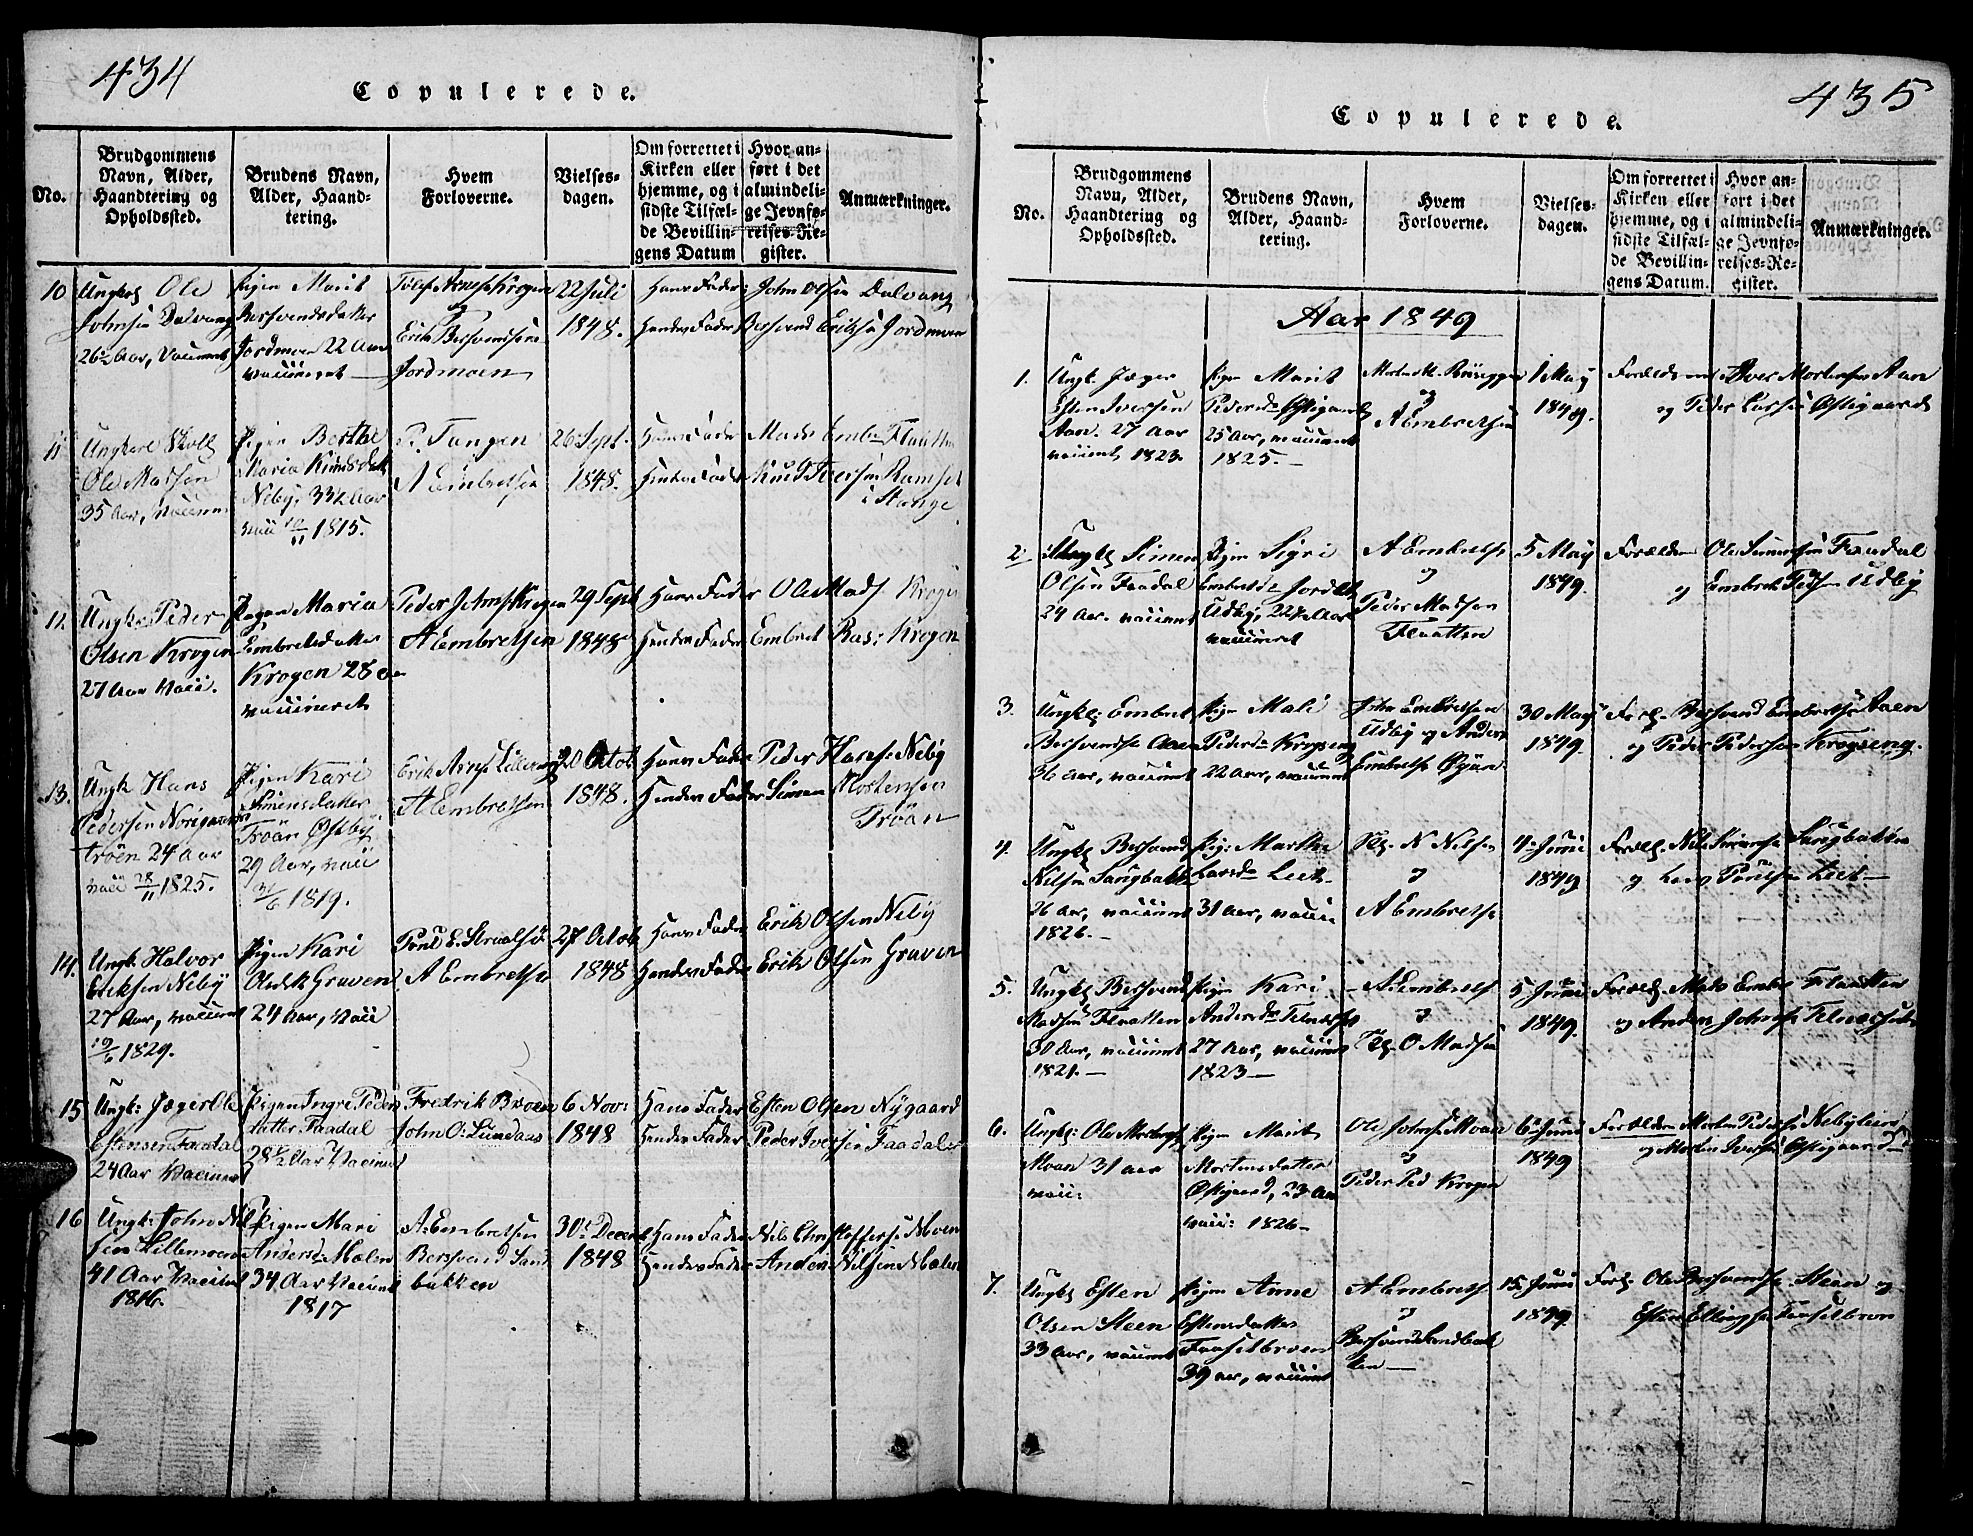 434
Copulerede.
No.
Brudgommens
Navn, Alder,
Haandtering og
Opholdssted.
Brudens Navn,
Alder, Haand-
tering.
Hvem
Forloverne.
Vielses-
dagen.
Om forrettet i
Kirken eller
hjemme, og i
sidste Tilfæl-
de Bevillin-
gens Datum
Hvor an-
ført i det
almindeli-
ge Jevnfø-
relses-Re-
gister.
Anmærkninger.
10
Ungk Ole
Johnsen Dalvang
26½ Aar, vaccineret
Pigen Marit
Bersvendsdatter
Jordmoen 22 Aar
vaccineret
Krogen
og
Erik Bersvendsen
Jordmoen
22 Juli
1848.
Hans Fader: John Olsen Dalvang
Hendes Fader Bersvend Eriksen Jordmoen
11
Ungkarl
Ole Madsen
35 Aar, vaccin
Pigen Berthe
Maria
Neby, 33½ Aar
vacc 10/11 1815.
P. Tangen
A Embretsen
26 Sept.
1848.
Hans Fader Mads Emb
Hendes Fader Knud Iversen Ramset
i Stange
Ungk. Peder
Olsen Krogen
27 Aar vacc.
Pigen Maria
Embretsdatter
Krogen 28
vaccineret
Peder Johns Krogen
A Embretsen
29 Sept
1848
Hans Fader Ole Mads Krogen
Hendes Fader Embret Ras: Krogen
13.
Ungk Hans
Pedersen
trøen 24 Aar
vacc 28/11 1825.
Pigen Kari
Simensdatter
Trøan Østby
29 Aar, vacc
1819.
Erik Arns
A Embretsen
20 Octob
1848.
Hans Fader Peder Hans. Neby
Hendes Fader Simen Mortensen
Trøan
14.
Ungk: Halvor
Eriksen Neby
27 Aar, vaccinert
1829.
Pigen Kari
Graven
24 Aar, vacc
Paul E.
A Embretsen
27 Octob
1848
Hans Fader Erik Olsen Neby
Hendes Fader Erik Olsen Graven
15
Ungk: Jæger Ole
Estensen Faadal
24 Aar Vaccineret
Pigen Ingri Peders
datter Faadal
28½ Aar Vaccineret
Fredrik Broen
John O: Sundaas
6 Nov:
1848
Hans Fader Esten Olsen Nygaard
Hendes Fader Peder Iversen Faadalen
16
Ungk: John Nil
sen Lillemoen
41 Aar Vaccinet
1816.
Pigen Mari
Andersd Mælen
34 Aar Vaccinet
1817
A. Embretsen
Bersvend Sand
bakken
30te Decemb
1848
Hans Fader Nils Christoffersen Moen
Hendes Fader Anders Nilsen Mælen
435
Copulerede.
No.
Brudgommens
Navn, Alder,
Haandtering og
Opholdssted.
Brudens Navn,
Alder, Haand-
tering.
Hvem
Forloverne.
Vielses-
dagen.
Om forrettet i
Kirken eller
hjemme, og i
sidste Tilfæl-
de Bevillin-
gens Datum.
Hvor an-
ført i det
almindeli-
ge Jevnfø-
relses-Re-
gister.
Anmærkninger.
Aar 1849
1.
Ungk. Jæger
Esten Iversen
Aan. 27 Aar
vaccinert, 1823.
Pigen Marit
Pedersd Østigaard
25 Aar, vaccineret
1825.
og
A Embretsen
1 May
1849.
Forældrene Iver Mortensen Aan
og Peder Larsen Østigaard
2
Ungk Simen
Olsen Faadal
24 Aar. vaccinert
Pigen Sigri
Embretsd Jordet
Udby, 22½ Aar
vaccineret
A Embretsen
og
Peder Madsen
Flaatten
5 May
1849.
Forældre Ole Simensen Faadal
og Embret Peds Udby
3.
Ungk Embret
Bersvends Aaen
36 Aar, vaccinert
Pigen Mali
Pedersd Krogseng
22 Aar, vaccinert
John Embretsen
Udby og Anders
Embrets Øyan
30 May
1849.
Foræl. Bersvend Embretsen Aaen
og Peder Pedersen Krogseng.
4.
Ungk Bersvend
Nilsen Langbakk
26 Aar, vaccinert
1826.
Pig: Marthe
Larsd Leet
31 Aar, vacc:
N Nilsen
og
A Embretsen
4 Juni
1849
Foræld. Nils Simens Langbakken
og Lars Leet
5.
Ungk Bersvend
Madsen Flaatten
30 Aar, vaccinert
1821.
Pigen Kari
Andersd Telneset
27 Aar, vaccinert
1823
A Embretsen
og
O Madsen
5 Juni
1849.
Foræld. Mads Embr Flaatten
og Anders Johns Telneset
6.
Ungk: Ole
Moan 31 aar
vacc:
Pigen Marit
Mortensdatter
Østigaard, 23 Aar
vacc: 1826
Ole Johns. Moan
og
Peder Ped Krogen
6 Juni
1849
Forældre Morten Peders Nebylien
og Morten Iversen Østigaard
7.
Ungk Esten
Olsen Steen
33 Aar, vaccinert
Pigen Anne
Estensdatter
Faasetbroen
39 aar, vaccinert
A Embretsen
og
Bersvend Sandbak
ken
15 Juni
1849
Foræl. Ole Bersvends Steen og
Esten Ellingsen Faasetbroen